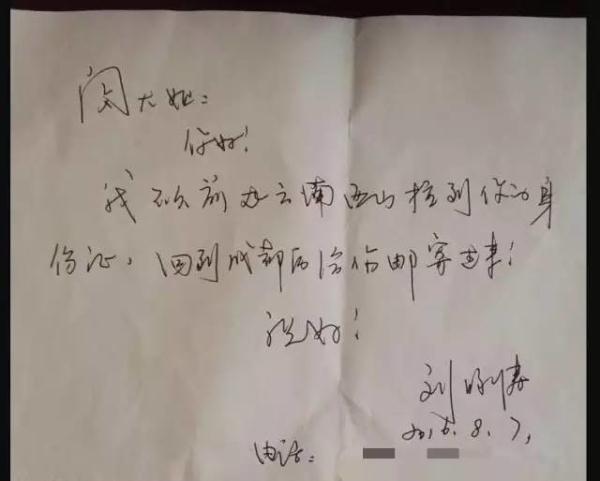 闵大姐:
你好!
我不久前在云南西山捡到你的身
份证,回到成都后给你邮寄过来!
祝好!
刘
8.7,
电话: